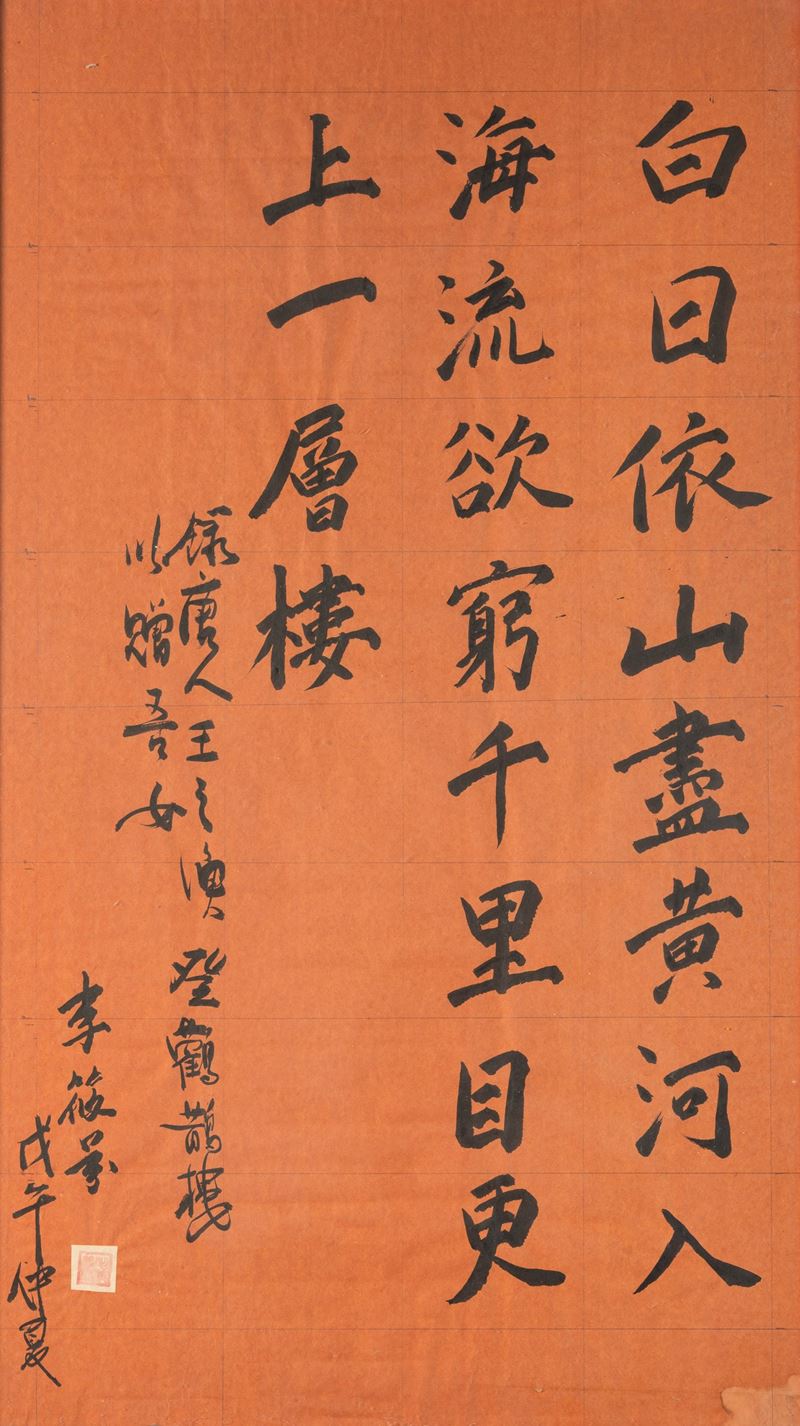 白日依山盡黃河入
海流欲窮千里目更
上一層樓
錄唐人王之渙登鸛鵲樓
以贈吾女
李筱
戊午仲夏